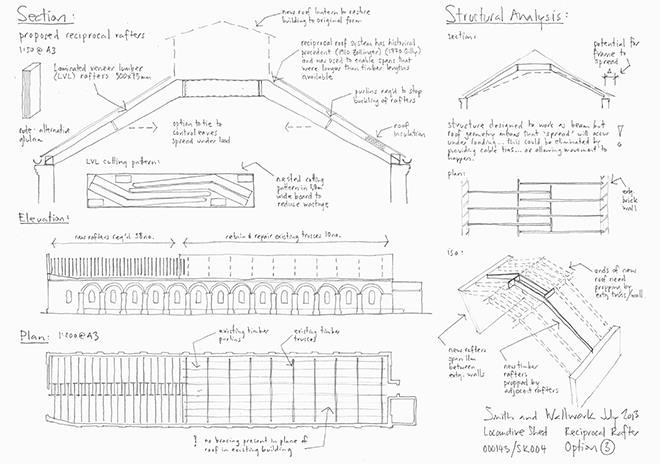 Section:
proposed reciprocal rafters
1:50 @ A3
Laminated veneer lumber
(LVL) rafters 300x75mm
note: alternative
glulam
new roof lantern to restore
building to original form
reciprocal roof system has historical
precedent (1910 Zollinger) (1770 Gilly)
and was used to enable spans that
were longer than timber lengths
available
purlins req'd to stop
buckling of rafters
roof
insulation
option to tie to
control eaves
spread under load
LVL cutting pattern:
nested cutting
pattern in
wide board to
reduce wastage
Elevation:
new rafters req'd 38no.
retain & repair existing trusses 10no.
Plan:
1:200 @ A3
existing timber
purlins
existing timber
trusses
! no bracing present in plane of
roof in existing building
Structural Analysis:
section:
potential for
frame to
spread
structure designed to work as beam but
roof geometry means that 'spread' will occur
under loading... this could be eliminated by
providing cable ties... or allowing movement to
happen.
!
plan:
extg. brick
wall
iso:
ends of new
roof need
propping by
extg truss/wall.
new rafters
span 11m
between
extg. walls
new timber
rafters
propped by
adjacent rafters
Smith and Wallwork July 2013
Locomotive Shed Reciprocal Rafter
000143/SK004 Option 3